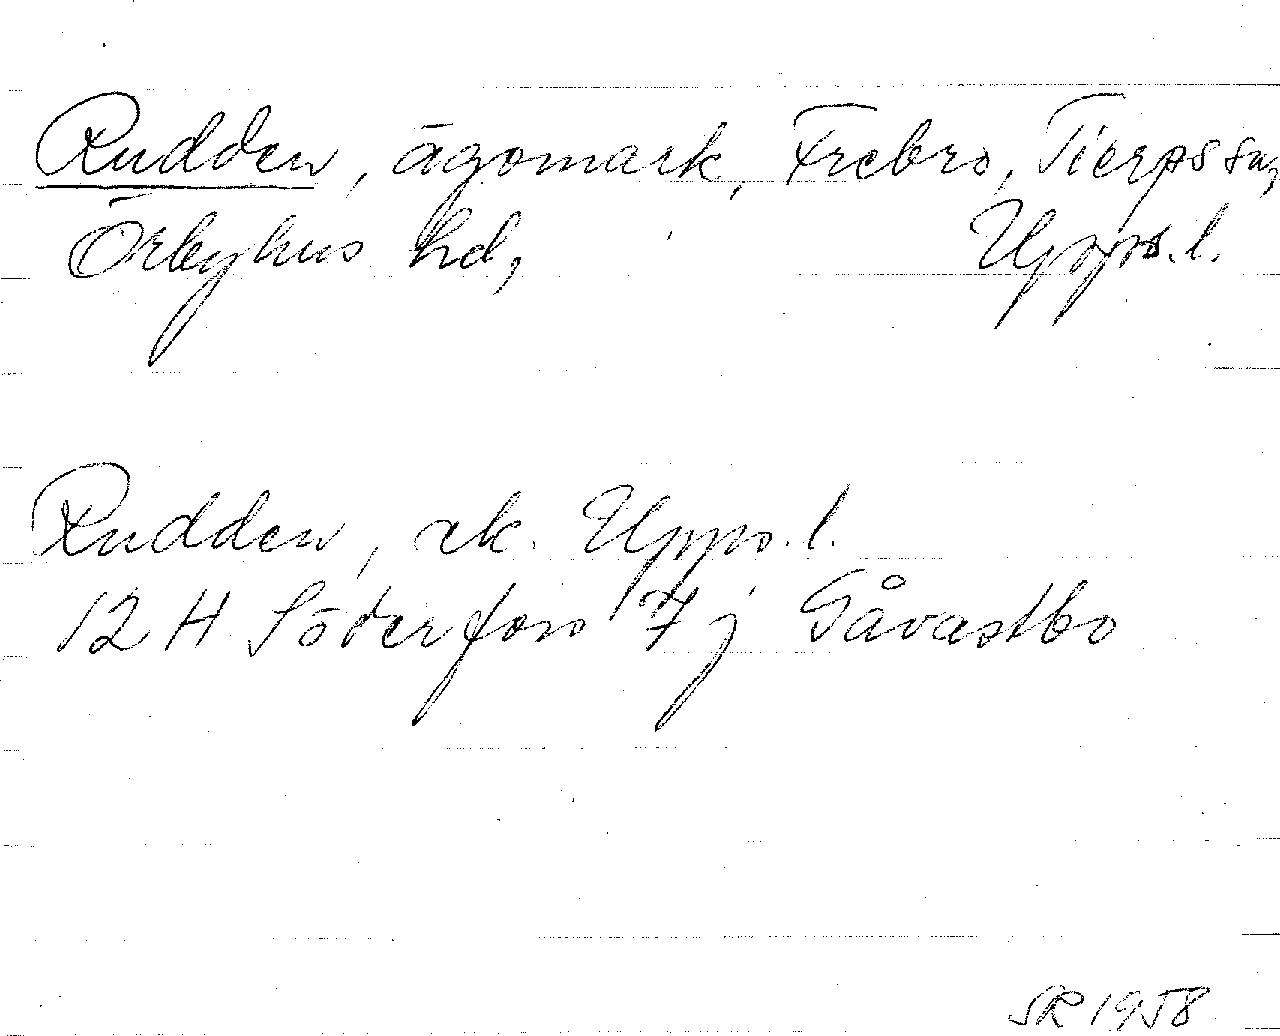 Rudden, ägomark, Frebro, Tierps sn,
Örbyhus hd, Upps. l.
Rudden, ek. Upps. l.
12 H Söderfors 7 j Gåvastbo
SR 1958